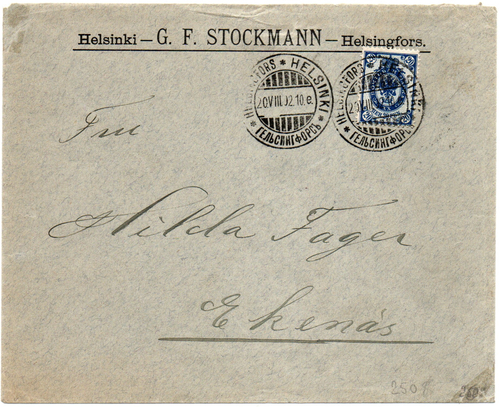 Helsinki — G. F. STOCKMANN — Helsingfors.
HELSINGFORS * HELSINKI * ГЕЛЬСИНГФОРСЪ *
20 VIII.02.10.e.
HELSINGFORS * HELSINKI * ГЕЛЬСИНГФОРСЪ *
20
Fru
Hilda Fager
Ekenäs